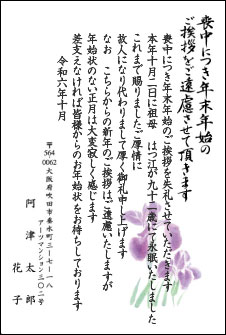 喪中につき年末年始の
ご挨拶をご遠慮させて頂きます
喪中につき年末年始のご挨拶を失礼させていただきます
本年十月二日に祖母　はつ江が九十二歳にて永眠いたしました
これまで賜りましたご厚情に
故人になり代わりまして厚く御礼申し上げます
なお　こちらからの新年のご挨拶はご遠慮いたしますが
年始状のない正月は大変寂しく感じます
差支えなければ皆様からのお年始状をお待ちしております
令和六年十月
〒564
0062
大阪府吹田市垂水町三ー七ー一八
アーツマンション三〇二号
阿津　太郎
花子